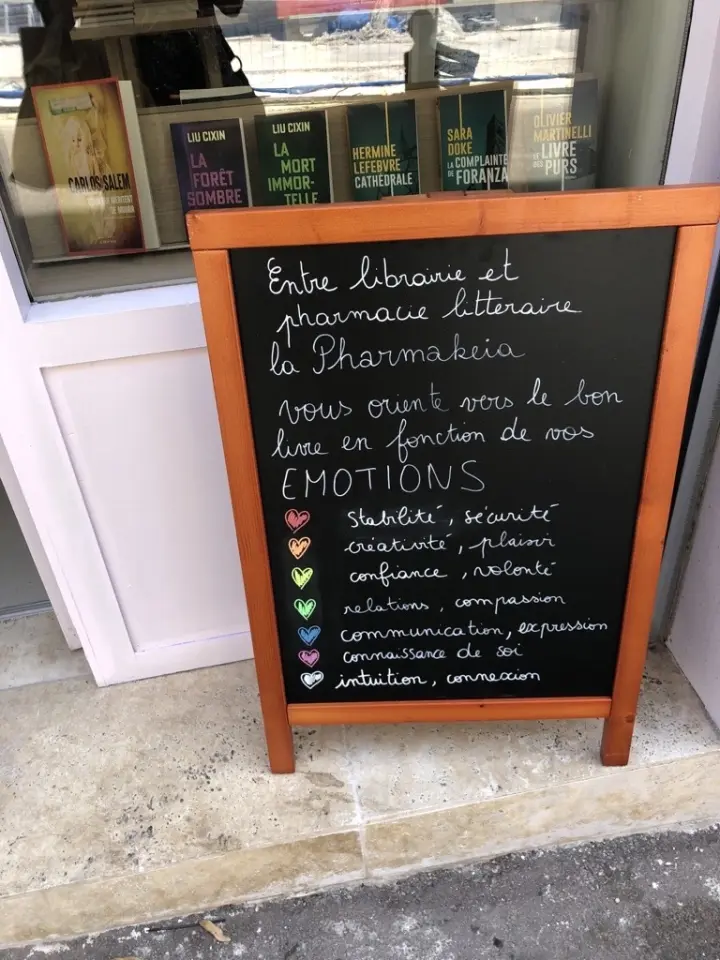 CARLOS SALEM
LIU CIXIN
LA
FORÊT
SOMBRE
LIU CIXIN
LA
MORT
IMMOR-
TELLE
HERMINE
LEFEBVRE
CATHÉDRALE
SARA
DOKE
LA COMPLAINTE
DE FORANZA
OLIVIER
MARTINELLI
LE LIVRE
DES PURS
Entre librairie et
pharmacie litteraire
la Pharmakeia
vous oriente vers le bon
livre en fonction de vos
EMOTIONS
stabilité, sécurité
créativité, plaisir
confiance, volonté
relations, compassion
communication, expression
connaissance de soi
intuition, connexion